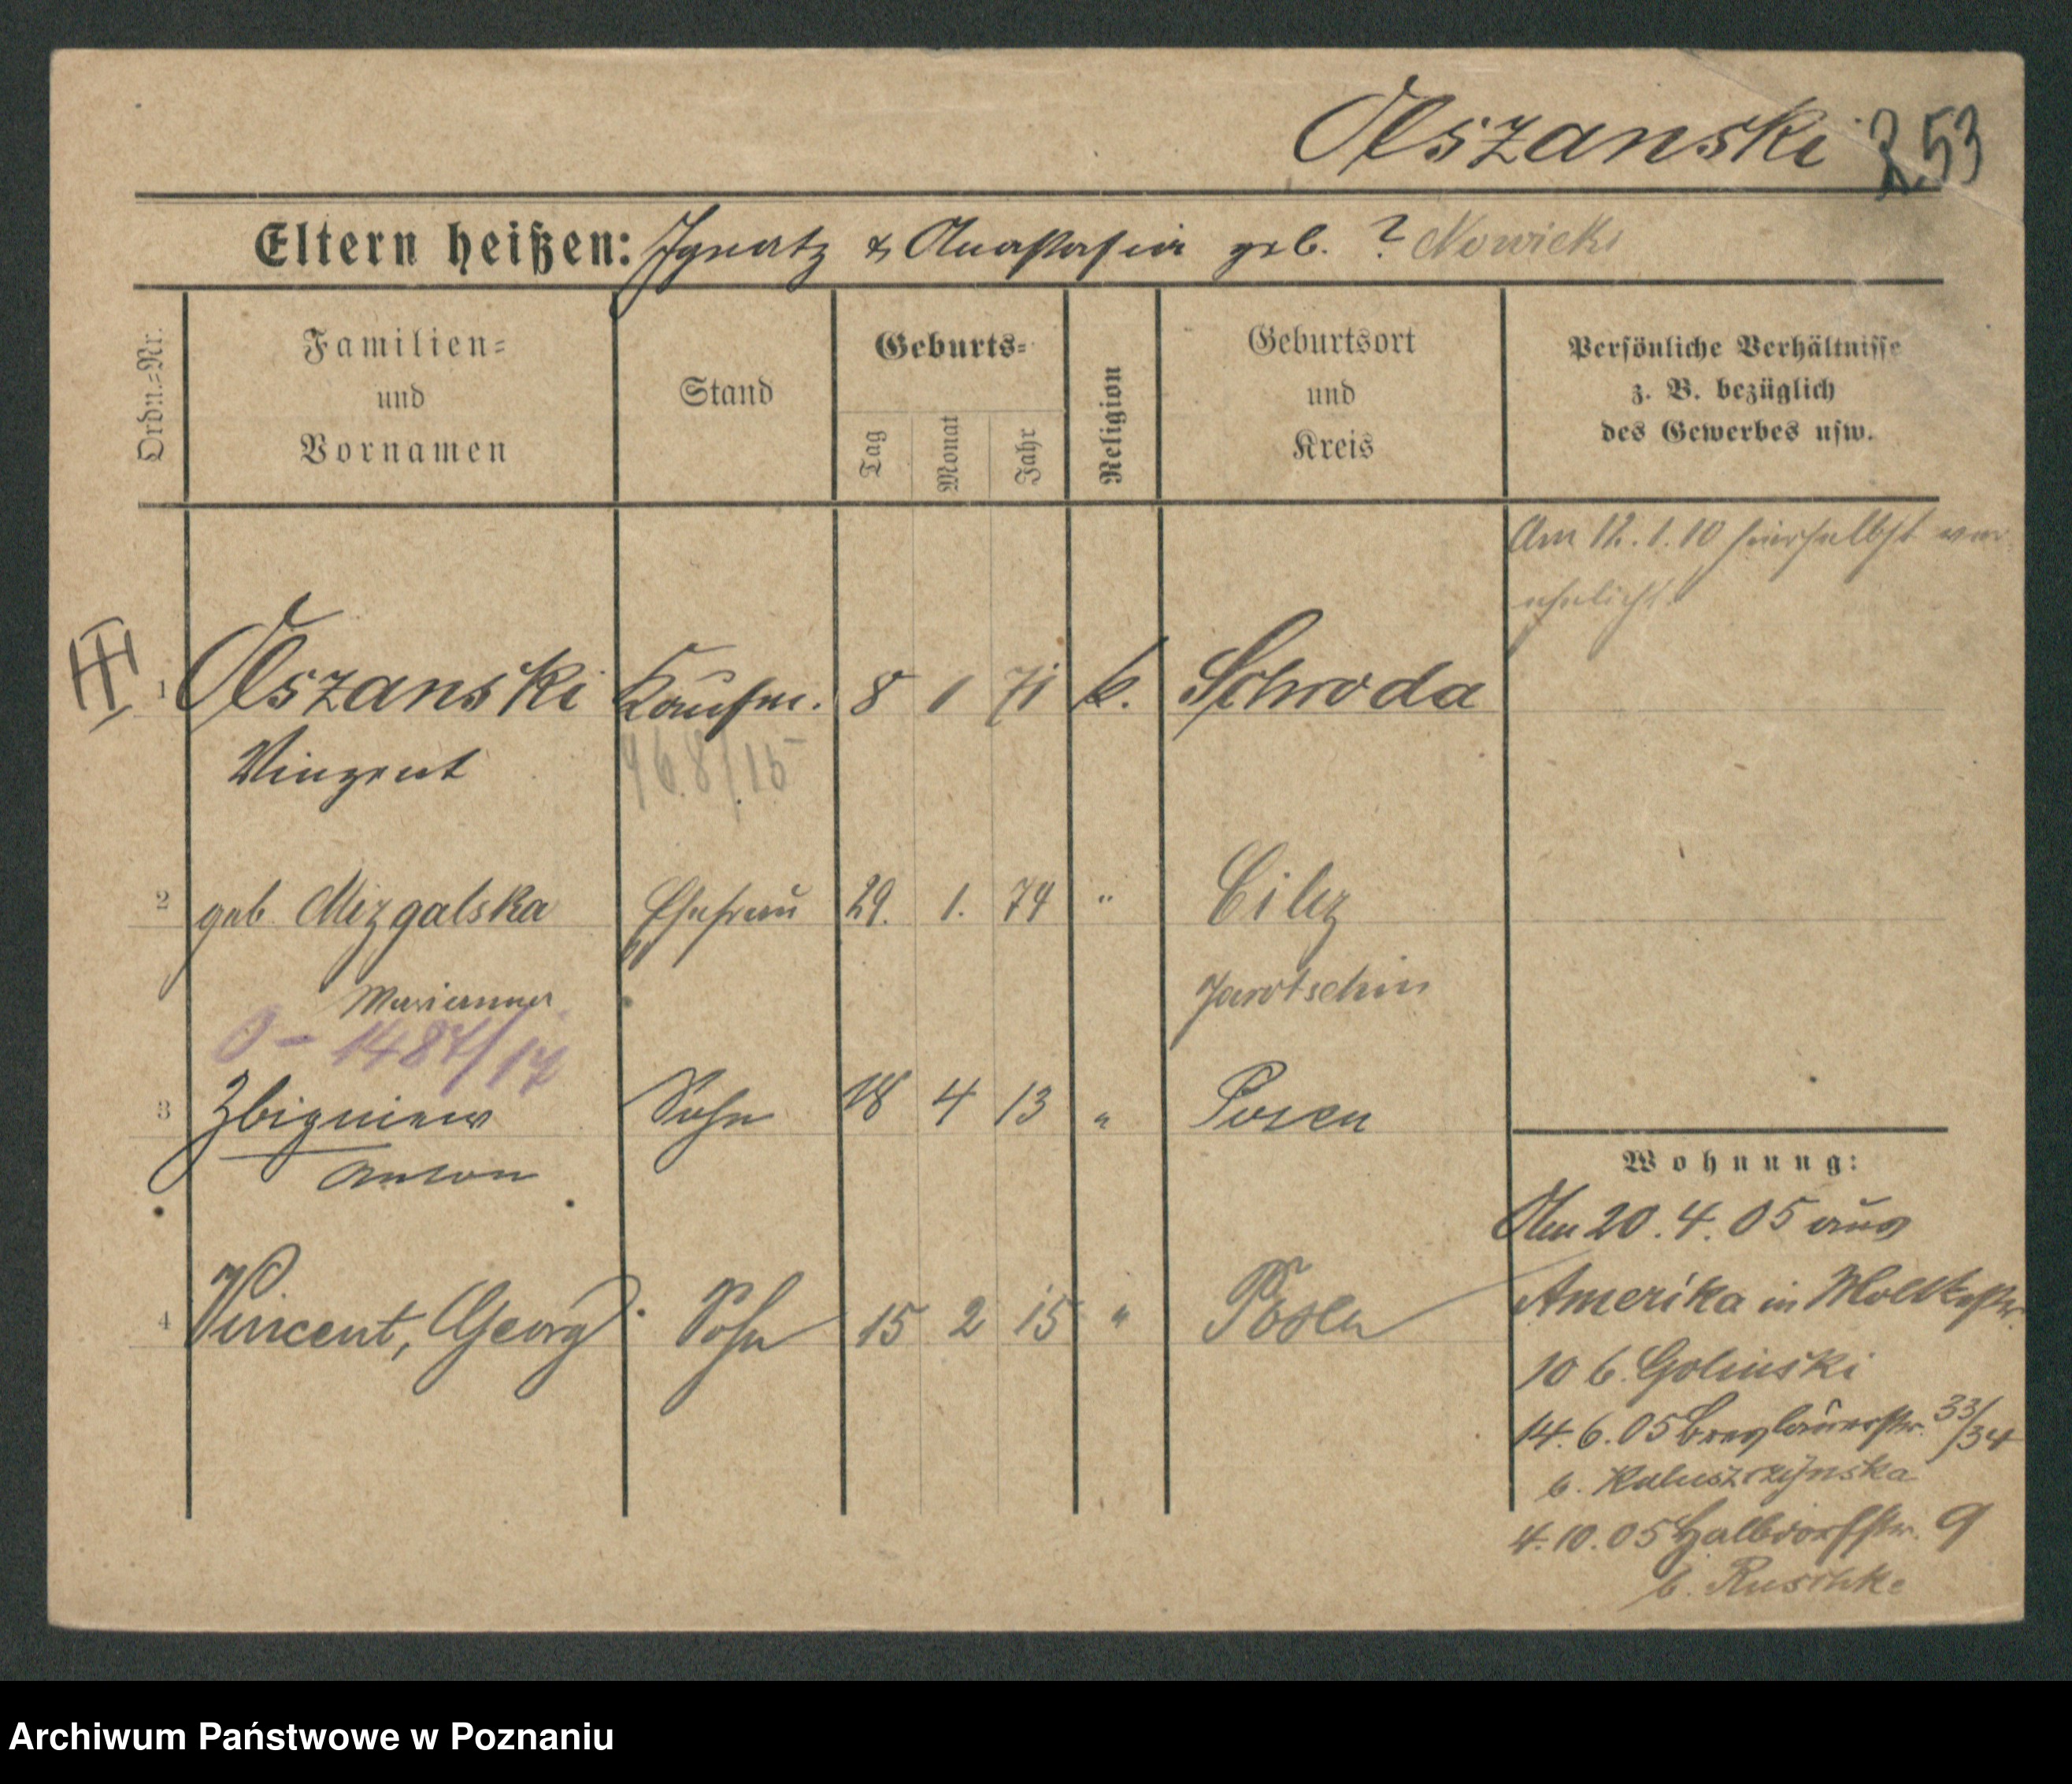 Olszanski 253
Eltern heißen: Ignatz & Anastasia geb. ? Nowicki
Ordn.=Nr.
Familien=
und
Vornamen
Stand
Geburts=
Tag
Monat
Jahr
Religion
Geburtsort
und
Kreis
Persönliche Verhältnisse
z. B. bezüglich
des Gewerbes usw.
Am 12. 1. 10 hierselbst ver
ehelicht.
1 Olszanski Kaufm. 8 1 71 k. Schroda
Vinzent 968/15
2 geb. Mizgalska Ehefrau 29. 1. 79 "
Jarotschin
Marianna
O - 1487/17
3 Zbigniew Sohn 18 4 13 " Posen
Anton
4 Vincent, Georg Sohn 15 2 15 " Posen
Wohnung:
Am 20. 4. 05 aus
Amerika in Moltkestr.
10 b. Golinski
14. 6. 05 Breslauerstr. 33/34
b.
4. 10. 05 Halbdorfstr. 9
b. Ruschke
Archiwum Państwowe w Poznaniu